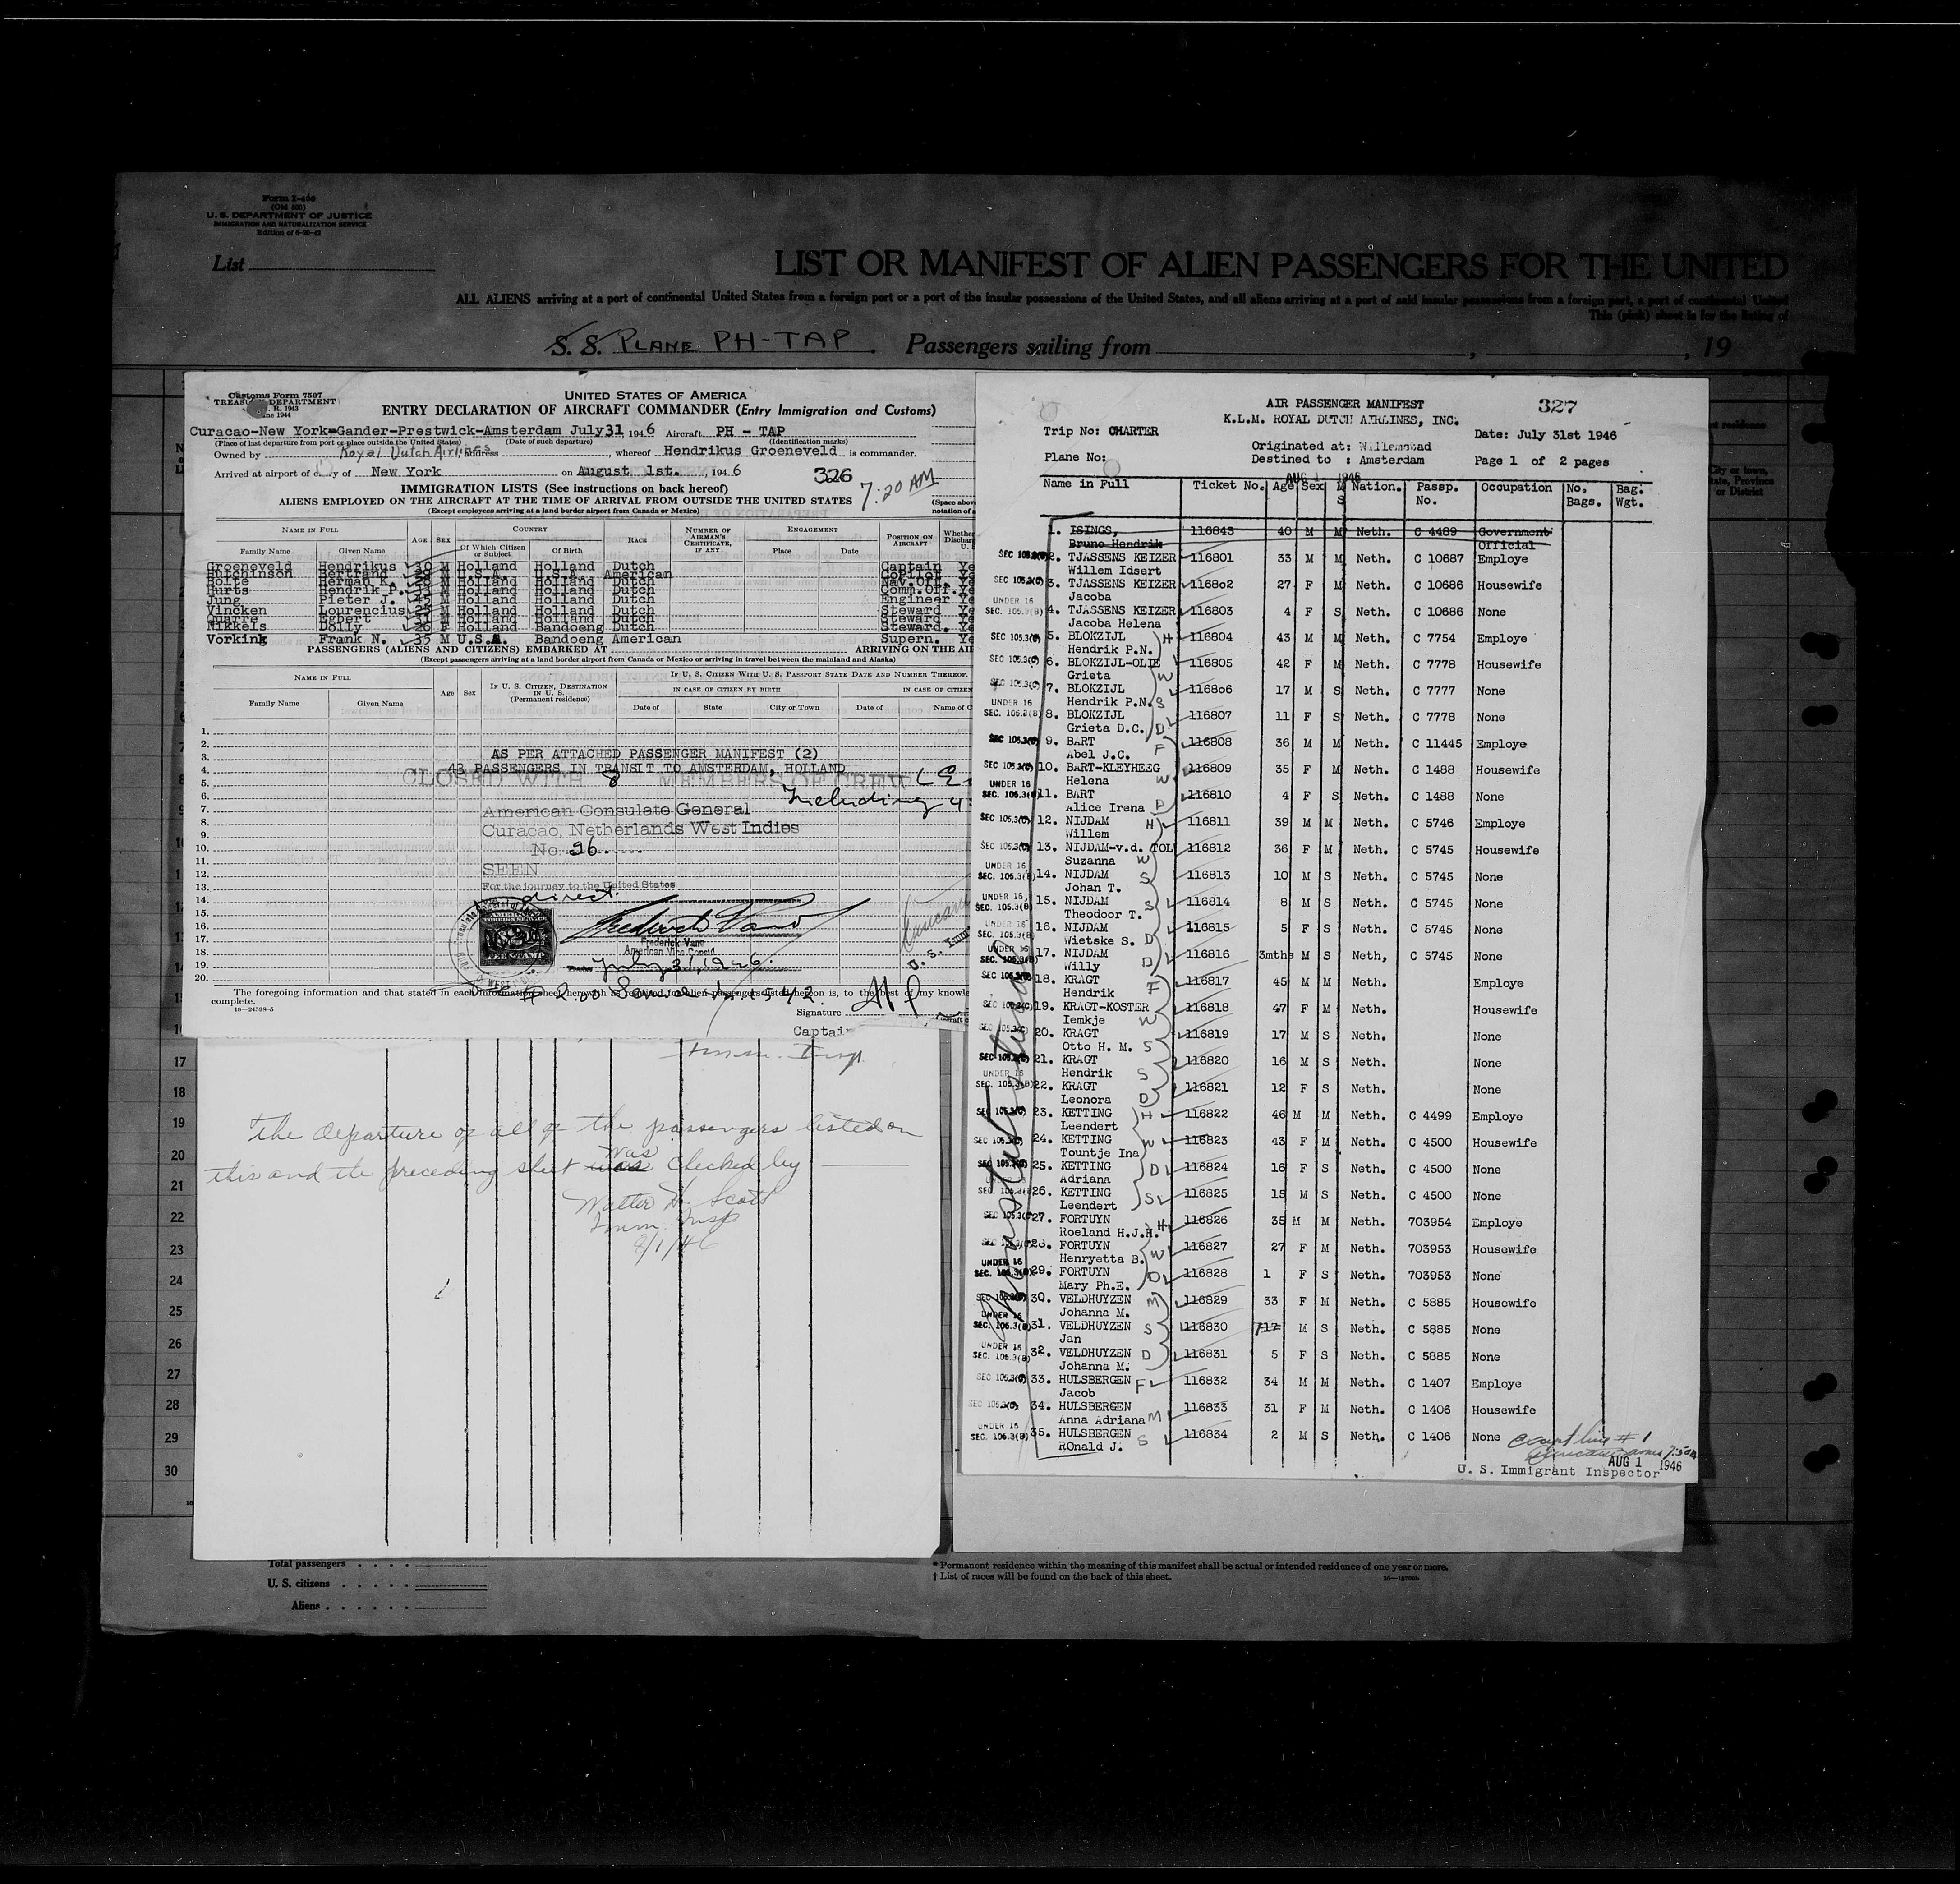 Form I-400
(Old 500)
U. S. DEPARTMENT OF JUSTICE
IMMIGRATION AND NATURALIZATION SERVICE
Edition of 6-20-42
List
LIST OR MANIFEST OF ALIEN PASSENGERS FOR THE UNITED
ALL ALIENS arriving at a port of continental United States from a foreign port or a port of the insular possessions of the United States, and all aliens arriving at a port of said insular possessions from a foreign port, a port of continental United
This (pink) sheet is for the listing of
S. S. PLANE PH-TAP. Passengers sailing from , , 19
Customs Form 7507
TREASURY DEPARTMENT
June 1944
UNITED STATES OF AMERICA
ENTRY DECLARATION OF AIRCRAFT COMMANDER (Entry Immigration and Customs)
Curacao-New York-Gander-Prestwick-Amsterdam July 31, 1946 Aircraft PH - TAP
(Place of last departure from port or place outside the United States) (Date of such departure) (Identification marks)
Owned by Royal Dutch Airlines Address , whereof Hendrikus Groeneveld is commander.
Arrived at airport of entry of New York on August 1st. , 1946 326
7:20 AM
IMMIGRATION LISTS (See instructions on back hereof)
ALIENS EMPLOYED ON THE AIRCRAFT AT THE TIME OF ARRIVAL FROM OUTSIDE THE UNITED STATES
(Except employees arriving at a land border airport from Canada or Mexico)
NAME IN FULL AGE SEX COUNTRY RACE NUMBER OF AIRMAN'S CERTIFICATE, IF ANY ENGAGEMENT POSITION ON AIRCRAFT
Family Name Given Name Of Which Citizen or Subject Of Birth Place Date
Groeneveld Hendrikus 30 M Holland Holland Dutch Captain Ye
Hutchinson Bertrand M U.S.A. U.S.A. American Copilot Ye
Bolte Herman K. M Holland Holland Dutch Nav.Off. Ye
Hurts Hendrik P. M Holland Holland Dutch Comm.Off. Ye
Jung Pieter J. M Holland Holland Dutch Engineer Ye
Vincken Lourencius M Holland Holland Dutch Steward Ye
Quarre Egbert M Holland Holland Dutch Steward Ye
Nikkels Dolly 26 F Holland Bandoeng Dutch Steward. Ye
Vorking Frank N. 35 M U.S.A. Bandoeng American Supern. Ye
PASSENGERS (ALIENS AND CITIZENS) EMBARKED AT ARRIVING ON THE AI
(Except passengers arriving at a land border airport from Canada or Mexico or arriving in travel between the mainland and Alaska)
NAME IN FULL Age Sex IF U. S. CITIZEN, DESTINATION IN U. S. (Permanent residence) IF U. S. CITIZEN WITH U. S. PASSPORT STATE DATE AND NUMBER THEREOF.
IN CASE OF CITIZEN BY BIRTH IN CASE OF CITIZEN
Family Name Given Name Date of State City or Town Date of Name of C
1.
2.
3. AS PER ATTACHED PASSENGER MANIFEST (2)
4. 43 PASSENGERS IN TRANSIT TO AMSTERDAM, HOLLAND
CLOSED WITH 8 MEMBERS OF CREW
5.
6. Including
7. American Consulate General
8. Curacao, Netherlands West Indies
9.
10. No. 96
11.
12. SEEN
13. For the journey to the United States
14. direct.
15.
16. Frederick Vane
17. Frederick Vane
18. American Vice Consul
19. Date July 31, 1946.
20.
The foregoing information and that stated in each information sheet herewith as required for alien passengers listed hereon is, to the best of my knowle
complete.
16—24598-5
Signature
Captain
Imm. Insp.
The departure of all of the passengers listed on
this and the preceding sheet was checked by
Walter H. Scott
Imm. Insp
8/1/46
17
18
19
20
21
22
23
24
25
26
27
28
29
30
Total passengers
U. S. citizens
Aliens
AIR PASSENGER MANIFEST 327
K.L.M. ROYAL DUTCH AIRLINES, INC.
Trip No: CHARTER Date: July 31st 1946
Originated at: Willemstad
Plane No: Destined to : Amsterdam Page 1 of 2 pages
AUG 1 1946
Name in Full Ticket No. Age Sex M S Nation. Passp. No. Occupation No. Bags. Bag. Wgt.
1. ISINGS, 116843 40 M M Neth. C 4489 Government
Bruno Hendrik Official
2. TJASSENS KEIZER 116801 33 M M Neth. C 10687 Employe
Willem Idsert
3. TJASSENS KEIZER 116802 27 F M Neth. C 10686 Housewife
Jacoba
4. TJASSENS KEIZER 116803 4 F S Neth. C 10686 None
Jacoba Helena
5. BLOKZIJL H 116804 43 M M Neth. C 7754 Employe
Hendrik P.N.
6. BLOKZIJL-OLIE 116805 42 F M Neth. C 7778 Housewife
Grieta W
7. BLOKZIJL 116806 17 M S Neth. C 7777 None
Hendrik P.N. S
8. BLOKZIJL 116807 11 F S Neth. C 7778 None
Grieta D.C. D
9. BART 116808 36 M M Neth. C 11445 Employe
Abel J.C. F
10. BART-KLEYHEEG 116809 35 F M Neth. C 1488 Housewife
Helena W
11. BART 116810 4 F S Neth. C 1488 None
Alice Irena D
12. NIJDAM H 116811 39 M M Neth. C 5746 Employe
Willem
13. NIJDAM-v.d. TOL 116812 36 F M Neth. C 5745 Housewife
Suzanna W
14. NIJDAM S 116813 10 M S Neth. C 5745 None
Johan T.
15. NIJDAM S 116814 8 M S Neth. C 5745 None
Theodoor T.
16. NIJDAM 116815 5 F S Neth. C 5745 None
Wietske S. D
17. NIJDAM 116816 3mths M S Neth, C 5745 None
Willy D
18. KRAGT F 116817 45 M M Neth. Employe
Hendrik
19. KRAGT-KOSTER 116818 47 F M Neth. Housewife
Iemkje W
20. KRAGT 116819 17 M S Neth. None
Otto H. M. S
21. KRAGT 116820 16 M S Neth. None
Hendrik S
22. KRAGT 116821 12 F S Neth. None
Leonora D
23. KETTING H 116822 46 M M Neth. C 4499 Employe
Leendert
24. KETTING W 116823 43 F M Neth. C 4500 Housewife
Tountje Ina
25. KETTING D 116824 16 F S Neth. C 4500 None
Adriana
26. KETTING S 116825 15 M S Neth. C 4500 None
Leendert
27. FORTUYN 116826 35 M M Neth. 703954 Employe
Roeland H.J.H. H
28. FORTUYN 116827 27 F M Neth. 703953 Housewife
Henryetta B. W
29. FORTUYN 116828 1 F S Neth. 703953 None
Mary Ph.E. D
30. VELDHUYZEN M 116829 33 F M Neth. C 5885 Housewife
Johanna M.
31. VELDHUYZEN S 116830 M S Neth. C 5885 None
Jan
32. VELDHUYZEN D 116831 5 F S Neth. C 5885 None
Johanna M.
33. HULSBERGEN F 116832 34 M M Neth. C 1407 Employe
Jacob
34. HULSBERGEN 116833 31 F M Neth. C 1406 Housewife
Anna Adriana M
35. HULSBERGEN 116834 2 M S Neth. C 1406 None
ROnald J. S
except line # 1
AUG 1 1946
U. S. Immigrant Inspector
* Permanent residence within the meaning of this manifest shall be actual or intended residence of one year or more.
† List of races will be found on the back of this sheet.